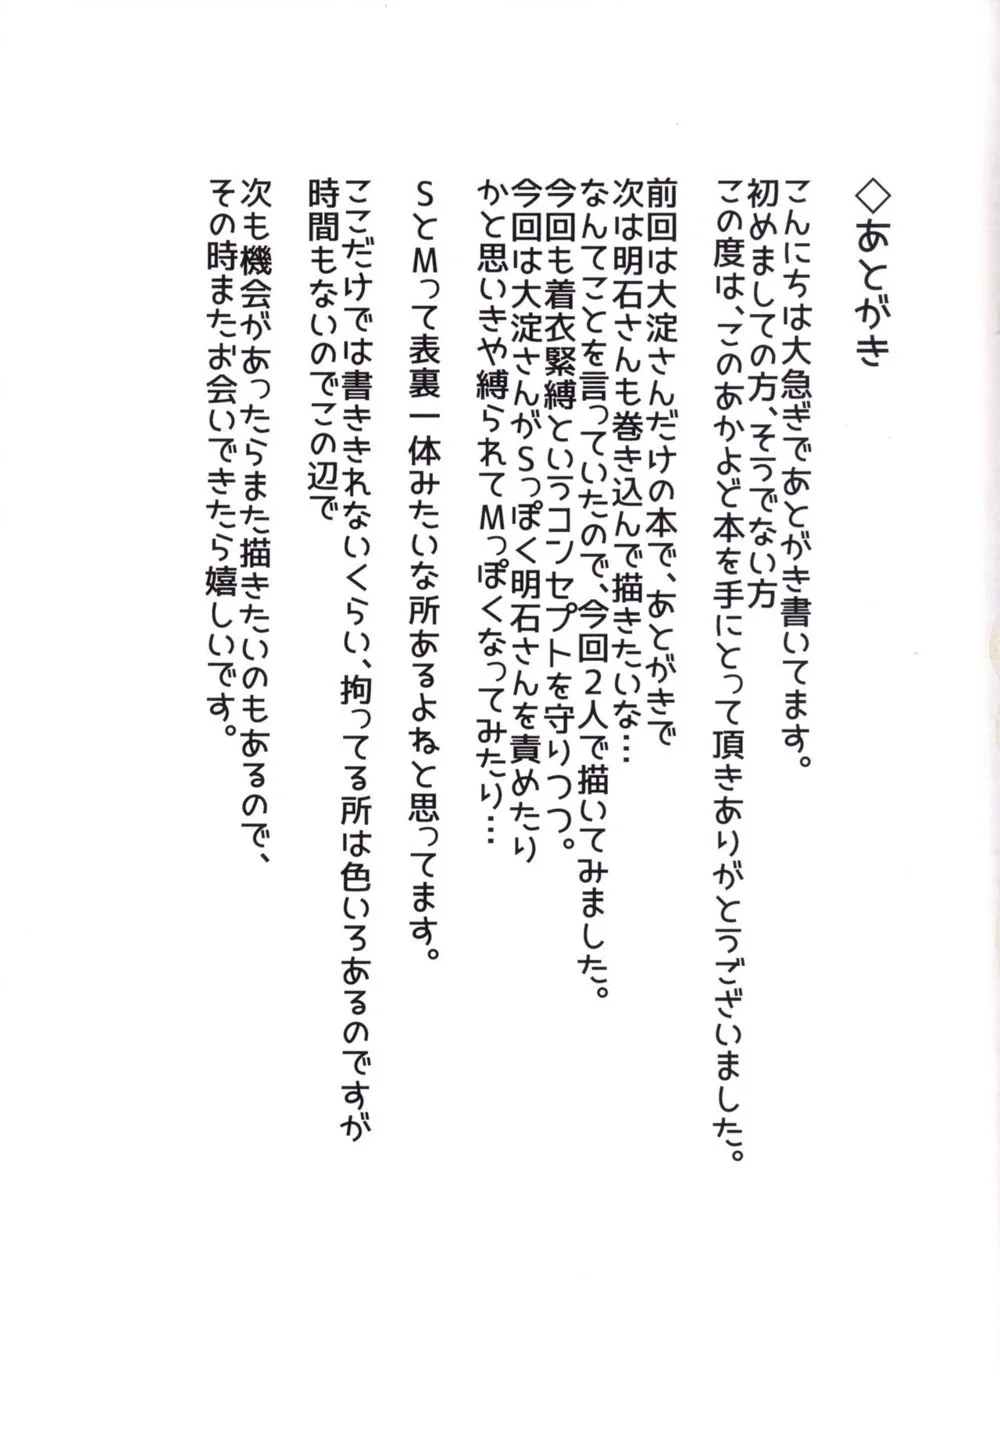 ◇あとがき
こんにちは大急ぎであとがき書いてます。
初めましての方、そうでない方
この度は、このあかよど本を手にとって頂きありがとうございました。
前回は大淀さんだけの本で、あとがきで
次は明石さんも巻き込んで描きたいな…
なんてことを言っていたので、今回2人で描いてみました。
今回も着衣緊縛というコンセプトを守りつつ。
今回は大淀さんがSっぽく明石さんを責めたり
かと思いきや縛られてMっぽくなってみたり…
SとMって表裏一体みたいな所あるよねと思ってます。
ここだけでは書ききれないくらい、拘ってる所は色いろあるのですが
時間もないのでこの辺で
次も機会があったらまた描きたいのもあるので、
その時またお会いできたら嬉しいです。